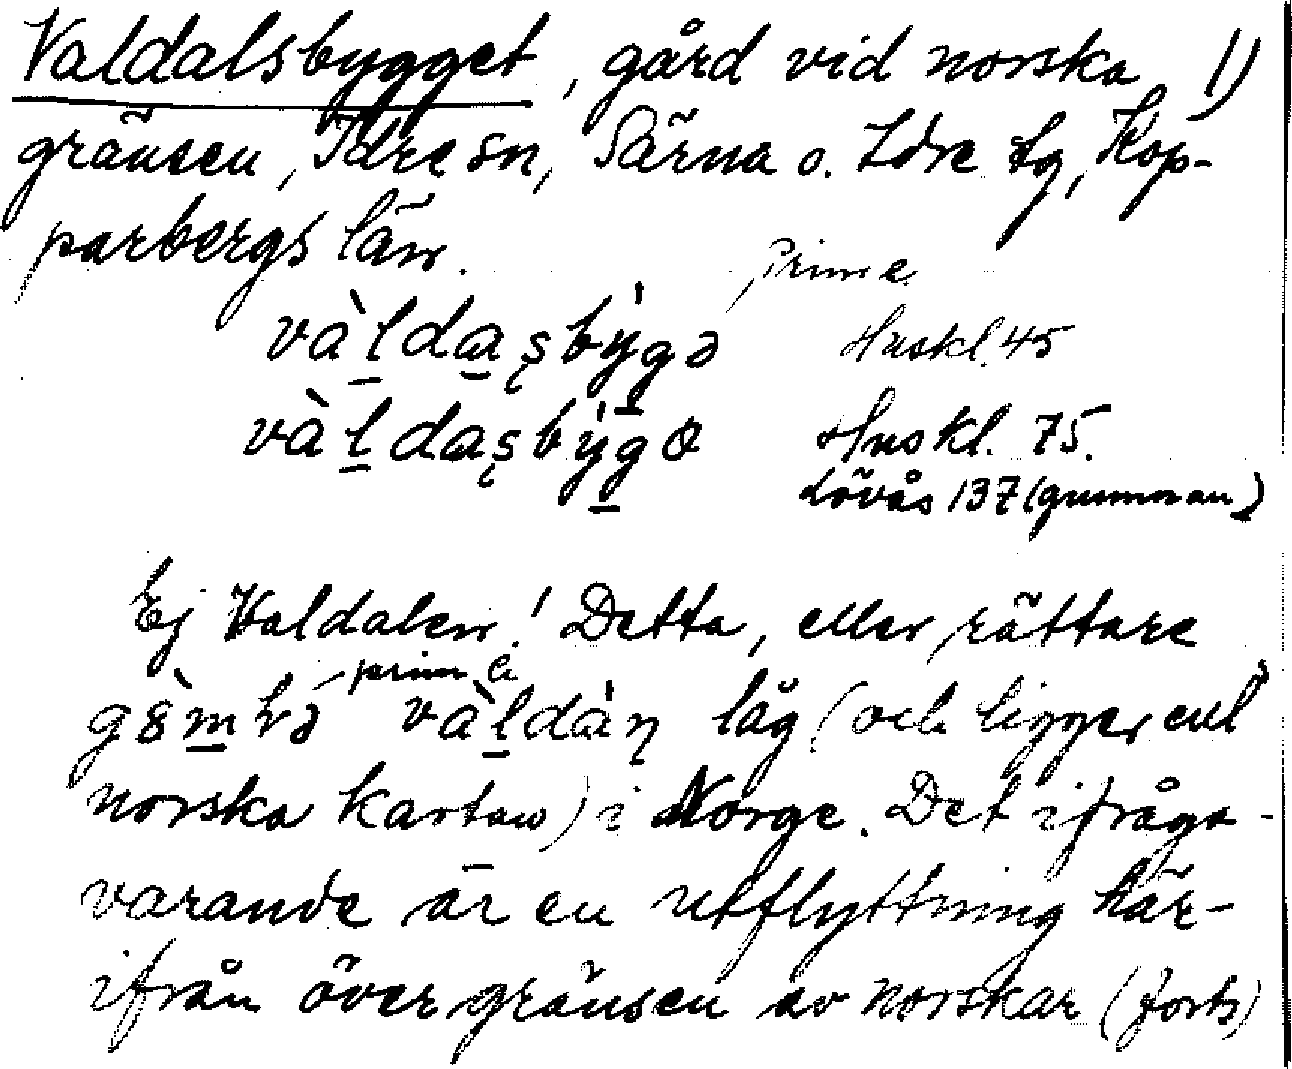 Valdalsbygget, gård vid norska 1)
gränsen, Idre sn, Särna o. Idre tg, Kop-
parbergs län.
prim e
và̱lda̱şbẏgə Huskl. 45
và̱ldaşbẏg̱ɵ Huskl. 75.
Lövås 137 (gumman)
Ej Valdalen! Detta, eller rättare
prim e
gȣ̀m̱lə và̱ldȧŋ låg (och ligger enl
norska kartan) i Norge. Det ifråga-
varande är en utflyttning här-
ifrån över gränsen av norskar (forts)